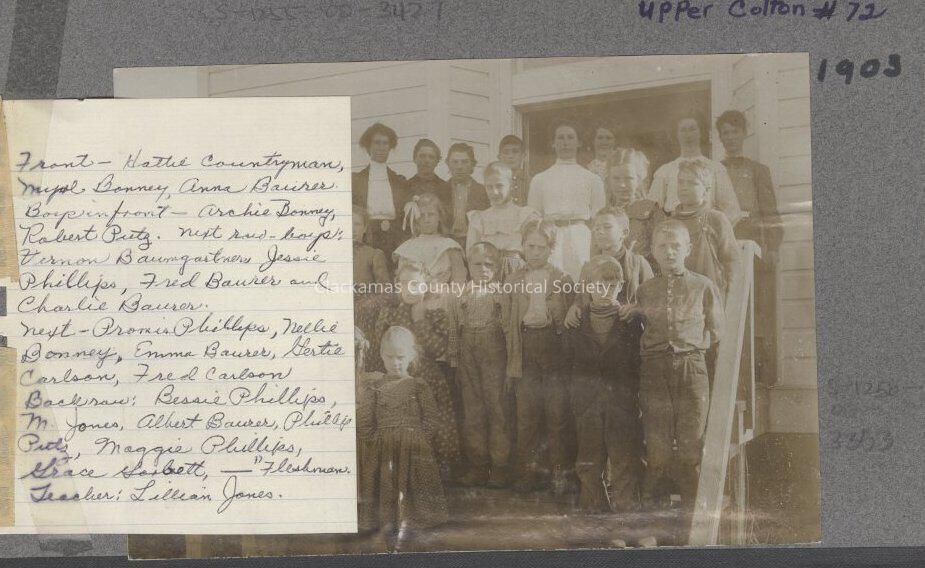 Upper Colton # 72
1903
Front - Hattie Countryman,
Bonney, Anna Baurer.
Boys in front - Archie Bonney,
Robert Putz. Next row - boys:
Vernon Baumgartner, Jessie
Phillips, Fred Baurer and
Charlie Baurer.
Next - Promis Phillips, Nellie
Bonney, Emma Baurer, Gertie
Carlson, Fred Carlson
Back row: Bessie Phillips,
M. Jones, Albert Baurer, Phillip
Putz, Maggie Phillips,
Grace — " Fleshman.
Teacher: Lillian Jones.
Clackamas County Historical Society